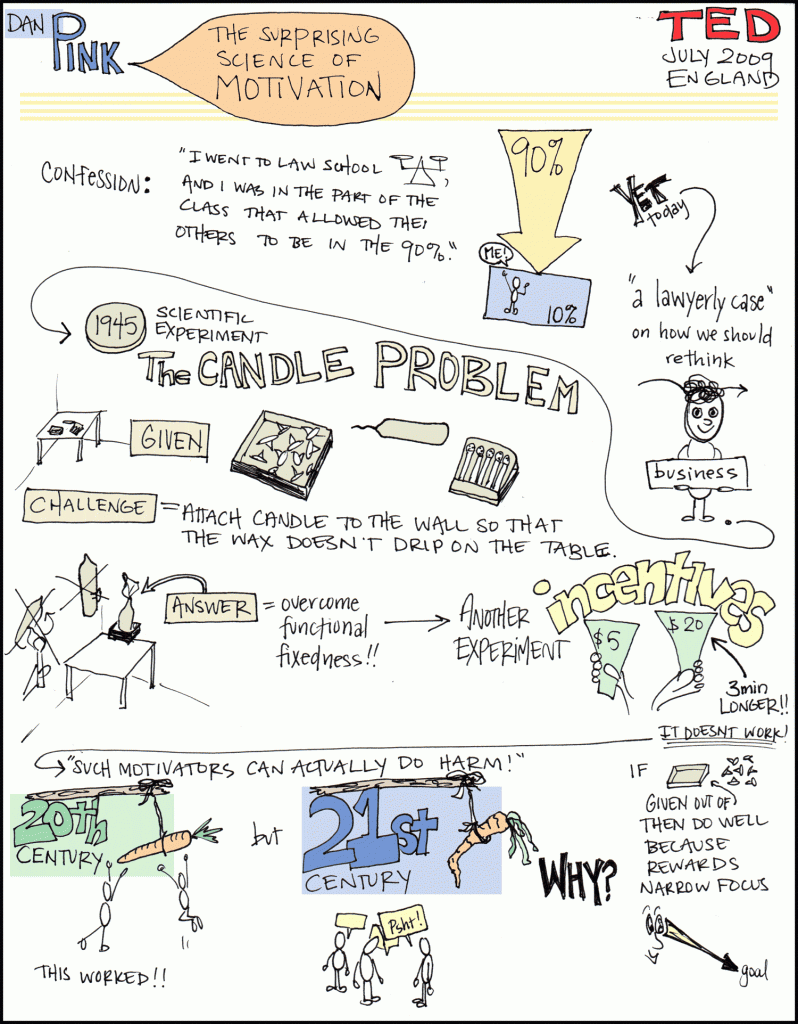 DAN
PINK
THE SURPRISING
SCIENCE OF
MOTIVATION
TED
JULY 2009
ENGLAND
CONFESSION:
"I WENT TO LAW SCHOOL,
AND I WAS IN THE PART OF THE
CLASS THAT ALLOWED THE
OTHERS TO BE IN THE 90%."
90%
ME!
10%
YET
today
"a lawyerly case"
on how we should
rethink
business
1945
SCIENTIFIC
EXPERIMENT
The CANDLE PROBLEM
GIVEN
CHALLENGE
= ATTACH CANDLE TO THE WALL SO THAT
THE WAX DOESN'T DRIP ON THE TABLE.
ANSWER
= overcome
functional
fixedness!!
ANOTHER
EXPERIMENT
incentives
$5
$20
3min
LONGER!!
IT DOESNT WORK!
"SUCH MOTIVATORS CAN ACTUALLY DO HARM!"
20th
CENTURY
THIS WORKED!!
but
21st
CENTURY
Psht!
WHY?
IF
GIVEN OUT OF
THEN DO WELL
BECAUSE
REWARDS
NARROW FOCUS
goal